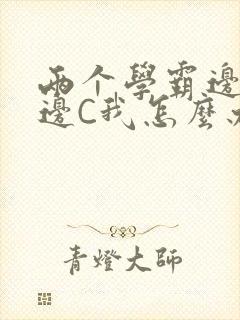 兩个學霸邊
邊C我怎麼
青燈大師